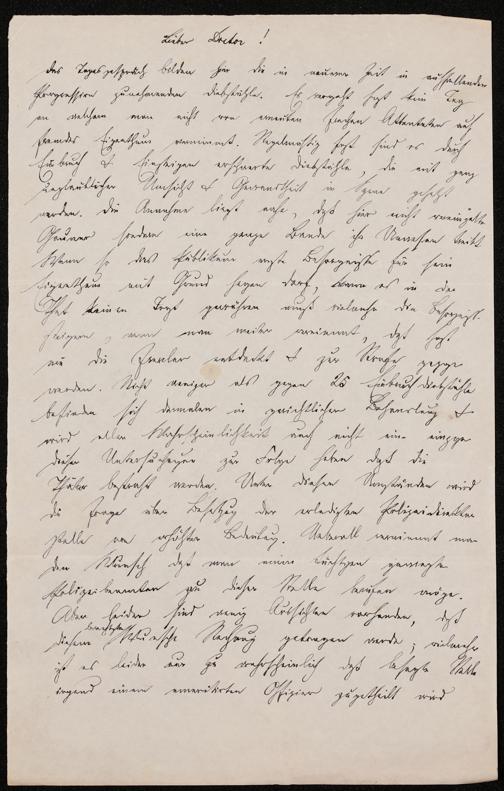 Lieber Doctor!
Das Tagesgespräch bilden hier die in neuerer Zeit in auffallender
Progression zunehmenden Diebstähle. Es vergeht fast kein Tag
an welchem man nicht von erneuten frechen Attentaten auf
fremdes Eigenthum vernimmt. Regelmäßig fast sind es durch
Einbruch & Einsteigen erschwerte Diebstähle, die mit ganz
unglaublicher Umsicht & Gewandtheit in Szene gesetzt
werden. Die Annahme liegt nahe, daß hier nicht vereinzelte
Gauner sondern eine ganze Bande ihr Unwesen treibt
Wenn so das Publikum ernste Besorgnisse für sein
Eigenthum mit Grund hegen darf, wenn es in der
That keinen Trost gewähren muß vielmehr die Besorgniß
steigern, wenn man weiter vernimmt, daß fast
nie die Frevler entdeckt & zur Strafe gezogen
werden. Nicht weniger als gegen 25 Einbruchdiebstähle
befinden sich dermalen in gerichtlicher Behandlung &
wird aller Wahrscheinlichkeit nach nicht eine einzige
dieser Untersuchungen zur Folge haben daß die
Thäter bestraft werden. Unter diesen Umständen wird
die Frage über Besetzung der erledigten Polizeidirektor
stelle von erhöhter Bedeutung. Überall vernimmt man
den Wunsch daß man einen tüchtigen gewiegten
Polizeibeamten zu dieser Stelle berufen möge.
Aber leider sind wenig Aussichten vorhanden, daß
diesem berechtigten Wunsche Rechnung getragen werde; vielmehr
ist es leider nur zu wahrscheinlich daß besagte Stelle
irgend einem emeritirten Offizier zugetheilt wird